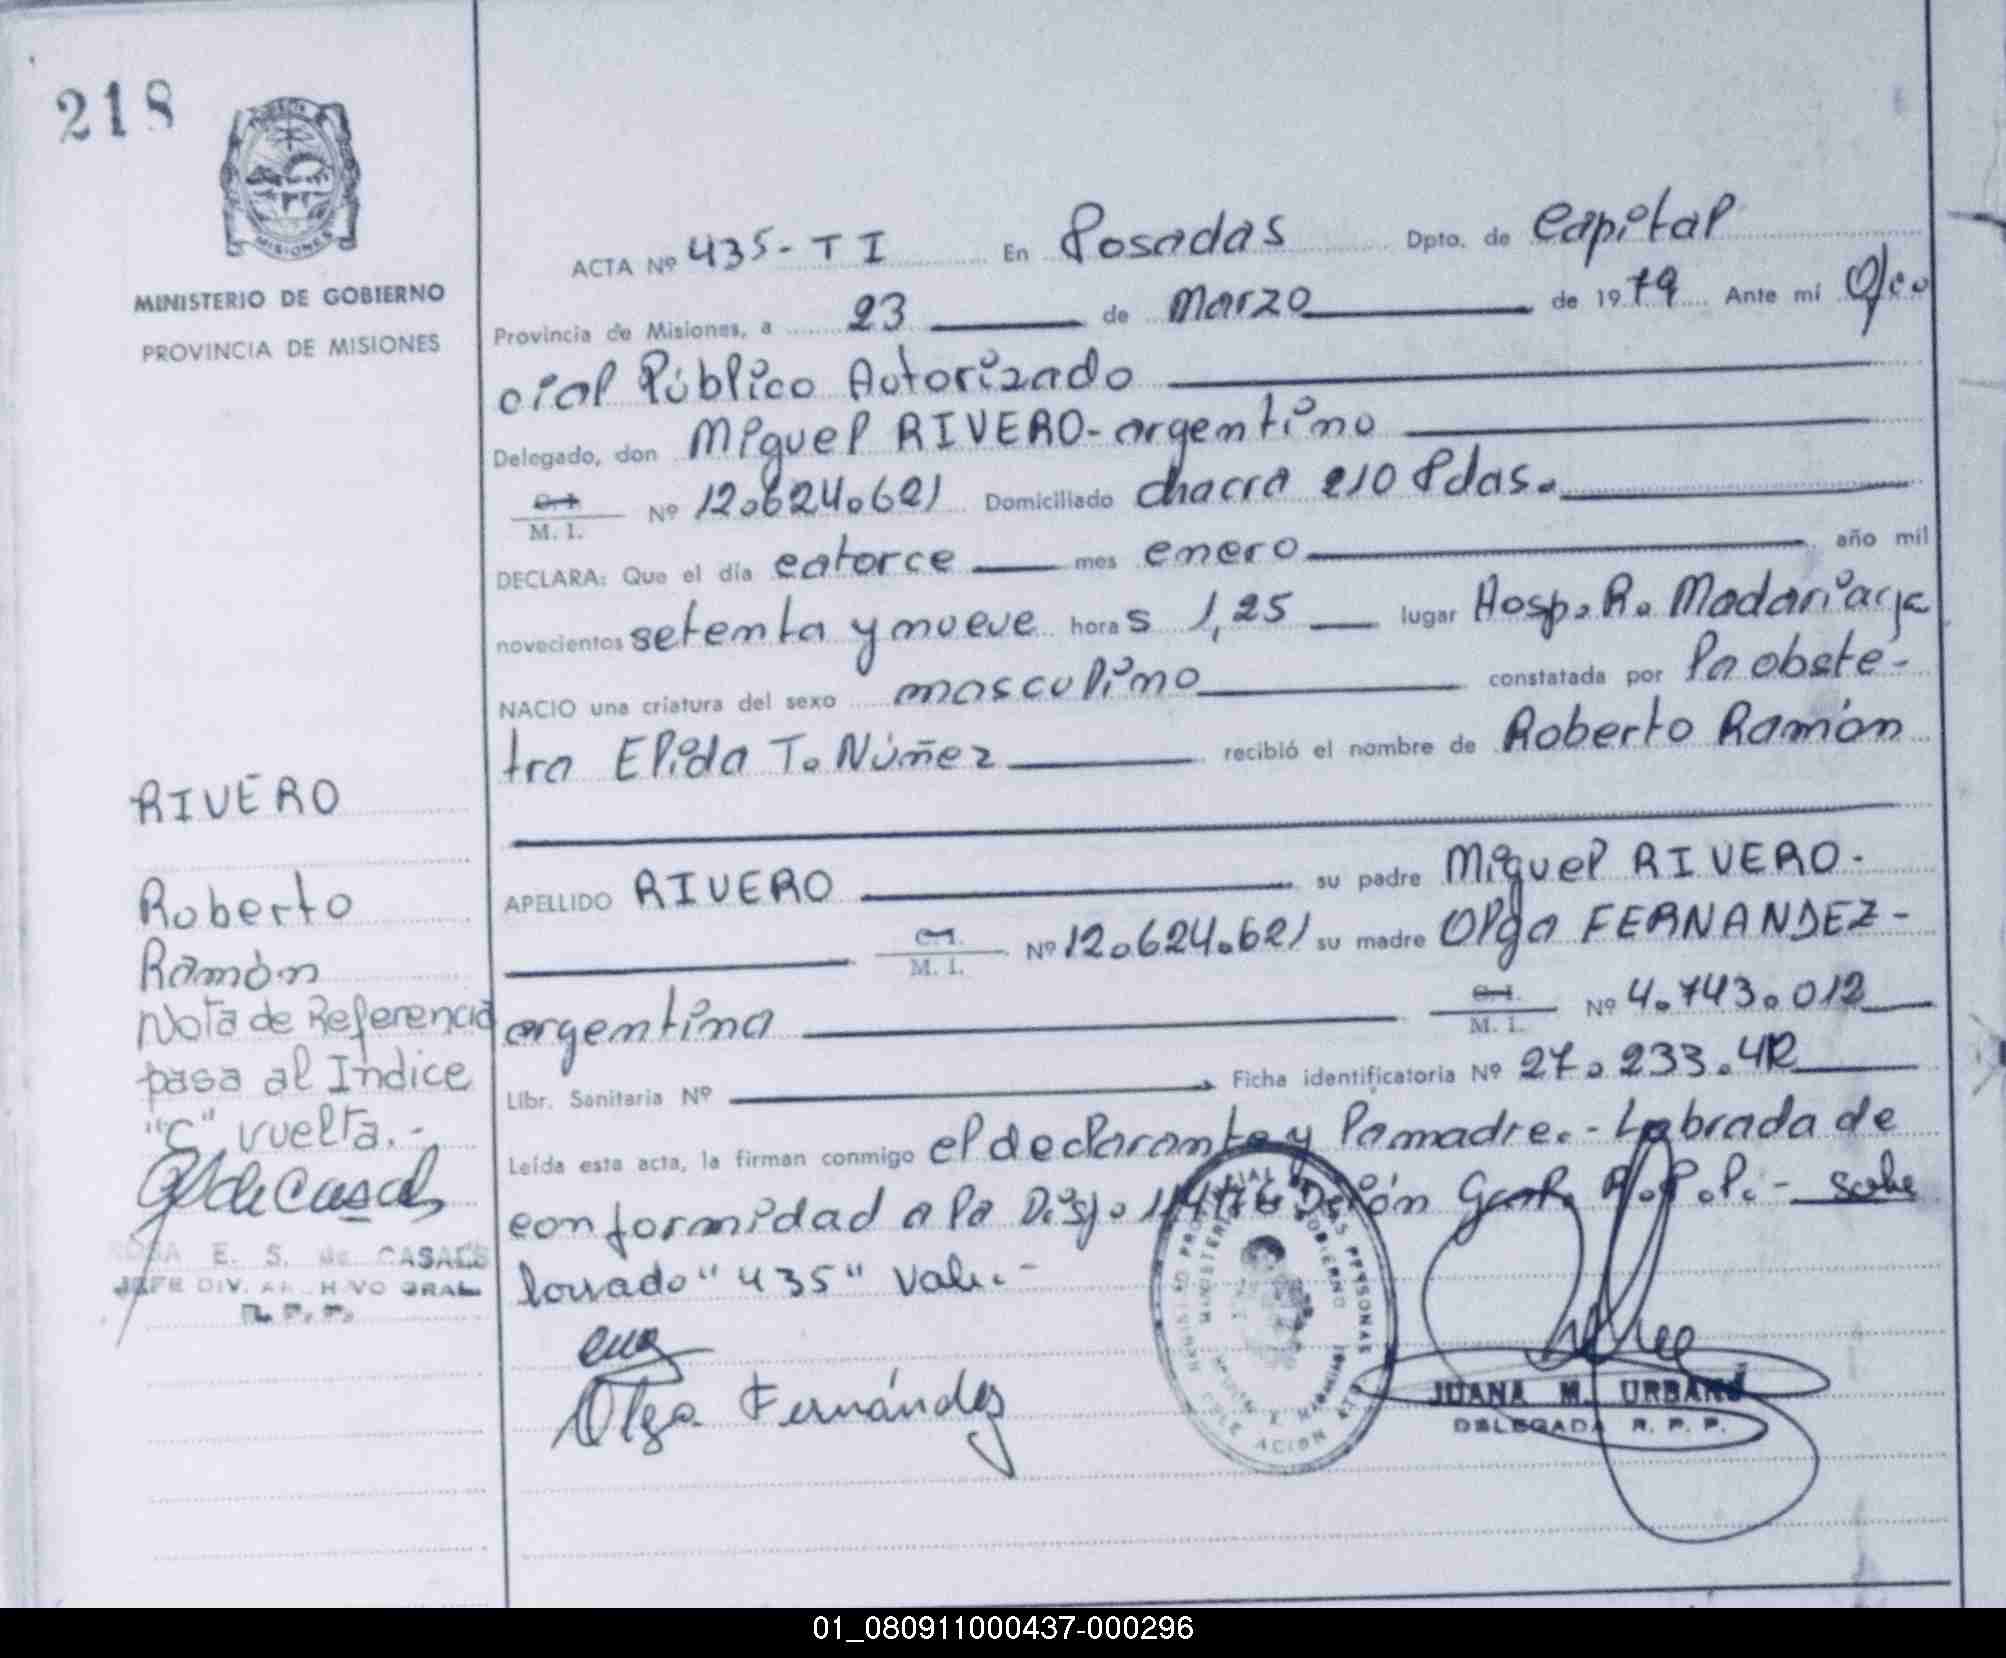 218
MINISTERIO DE GOBIERNO
PROVINCIA DE MISIONES
MISIONES
ACTA Nº 435-TI En Posadas Dpto. de Capital
Provincia de Misiones, a 23 de Marzo de 1979 Ante mí Ofi
cial Público Autorizado
Delegado, don Miguel RIVERO-argentino
C.I. M. I. Nº 12.624.621 Domiciliado chacra 210 Pdas.
DECLARA: Que el día catorce mes enero año mil
novecientos setenta y nueve horas 1,25 lugar Hosp. R. Madariaga
NACIO una criatura del sexo masculino constatada por la obste-
tra Elida T. Núñez recibió el nombre de Roberto Ramón
APELLIDO RIVERO su padre Miguel RIVERO.
C.I. M. I. Nº 12.624.621 su madre Olga FERNANDEZ-
argentina C.I. M. I. Nº 4.743.012
Libr. Sanitaria Nº Ficha identificatoria Nº 27.233.412
Leída esta acta, la firman conmigo el declarante y la madre.- Labrada de
conformidad a la Disp. Gral. R.P.P.- sobre
"435" vale.-
Olga Fernández
JUANA M. URBANO
DELEGADA R. P. P.
RIVERO
Roberto
Ramón
Nota de Referencia
pasa al Indice
"C" vuelta.-
ROSA E. S. de CASALS
JEFE DIV. ARCHIVO GRAL
R. P. P.
01_080911000437-000296